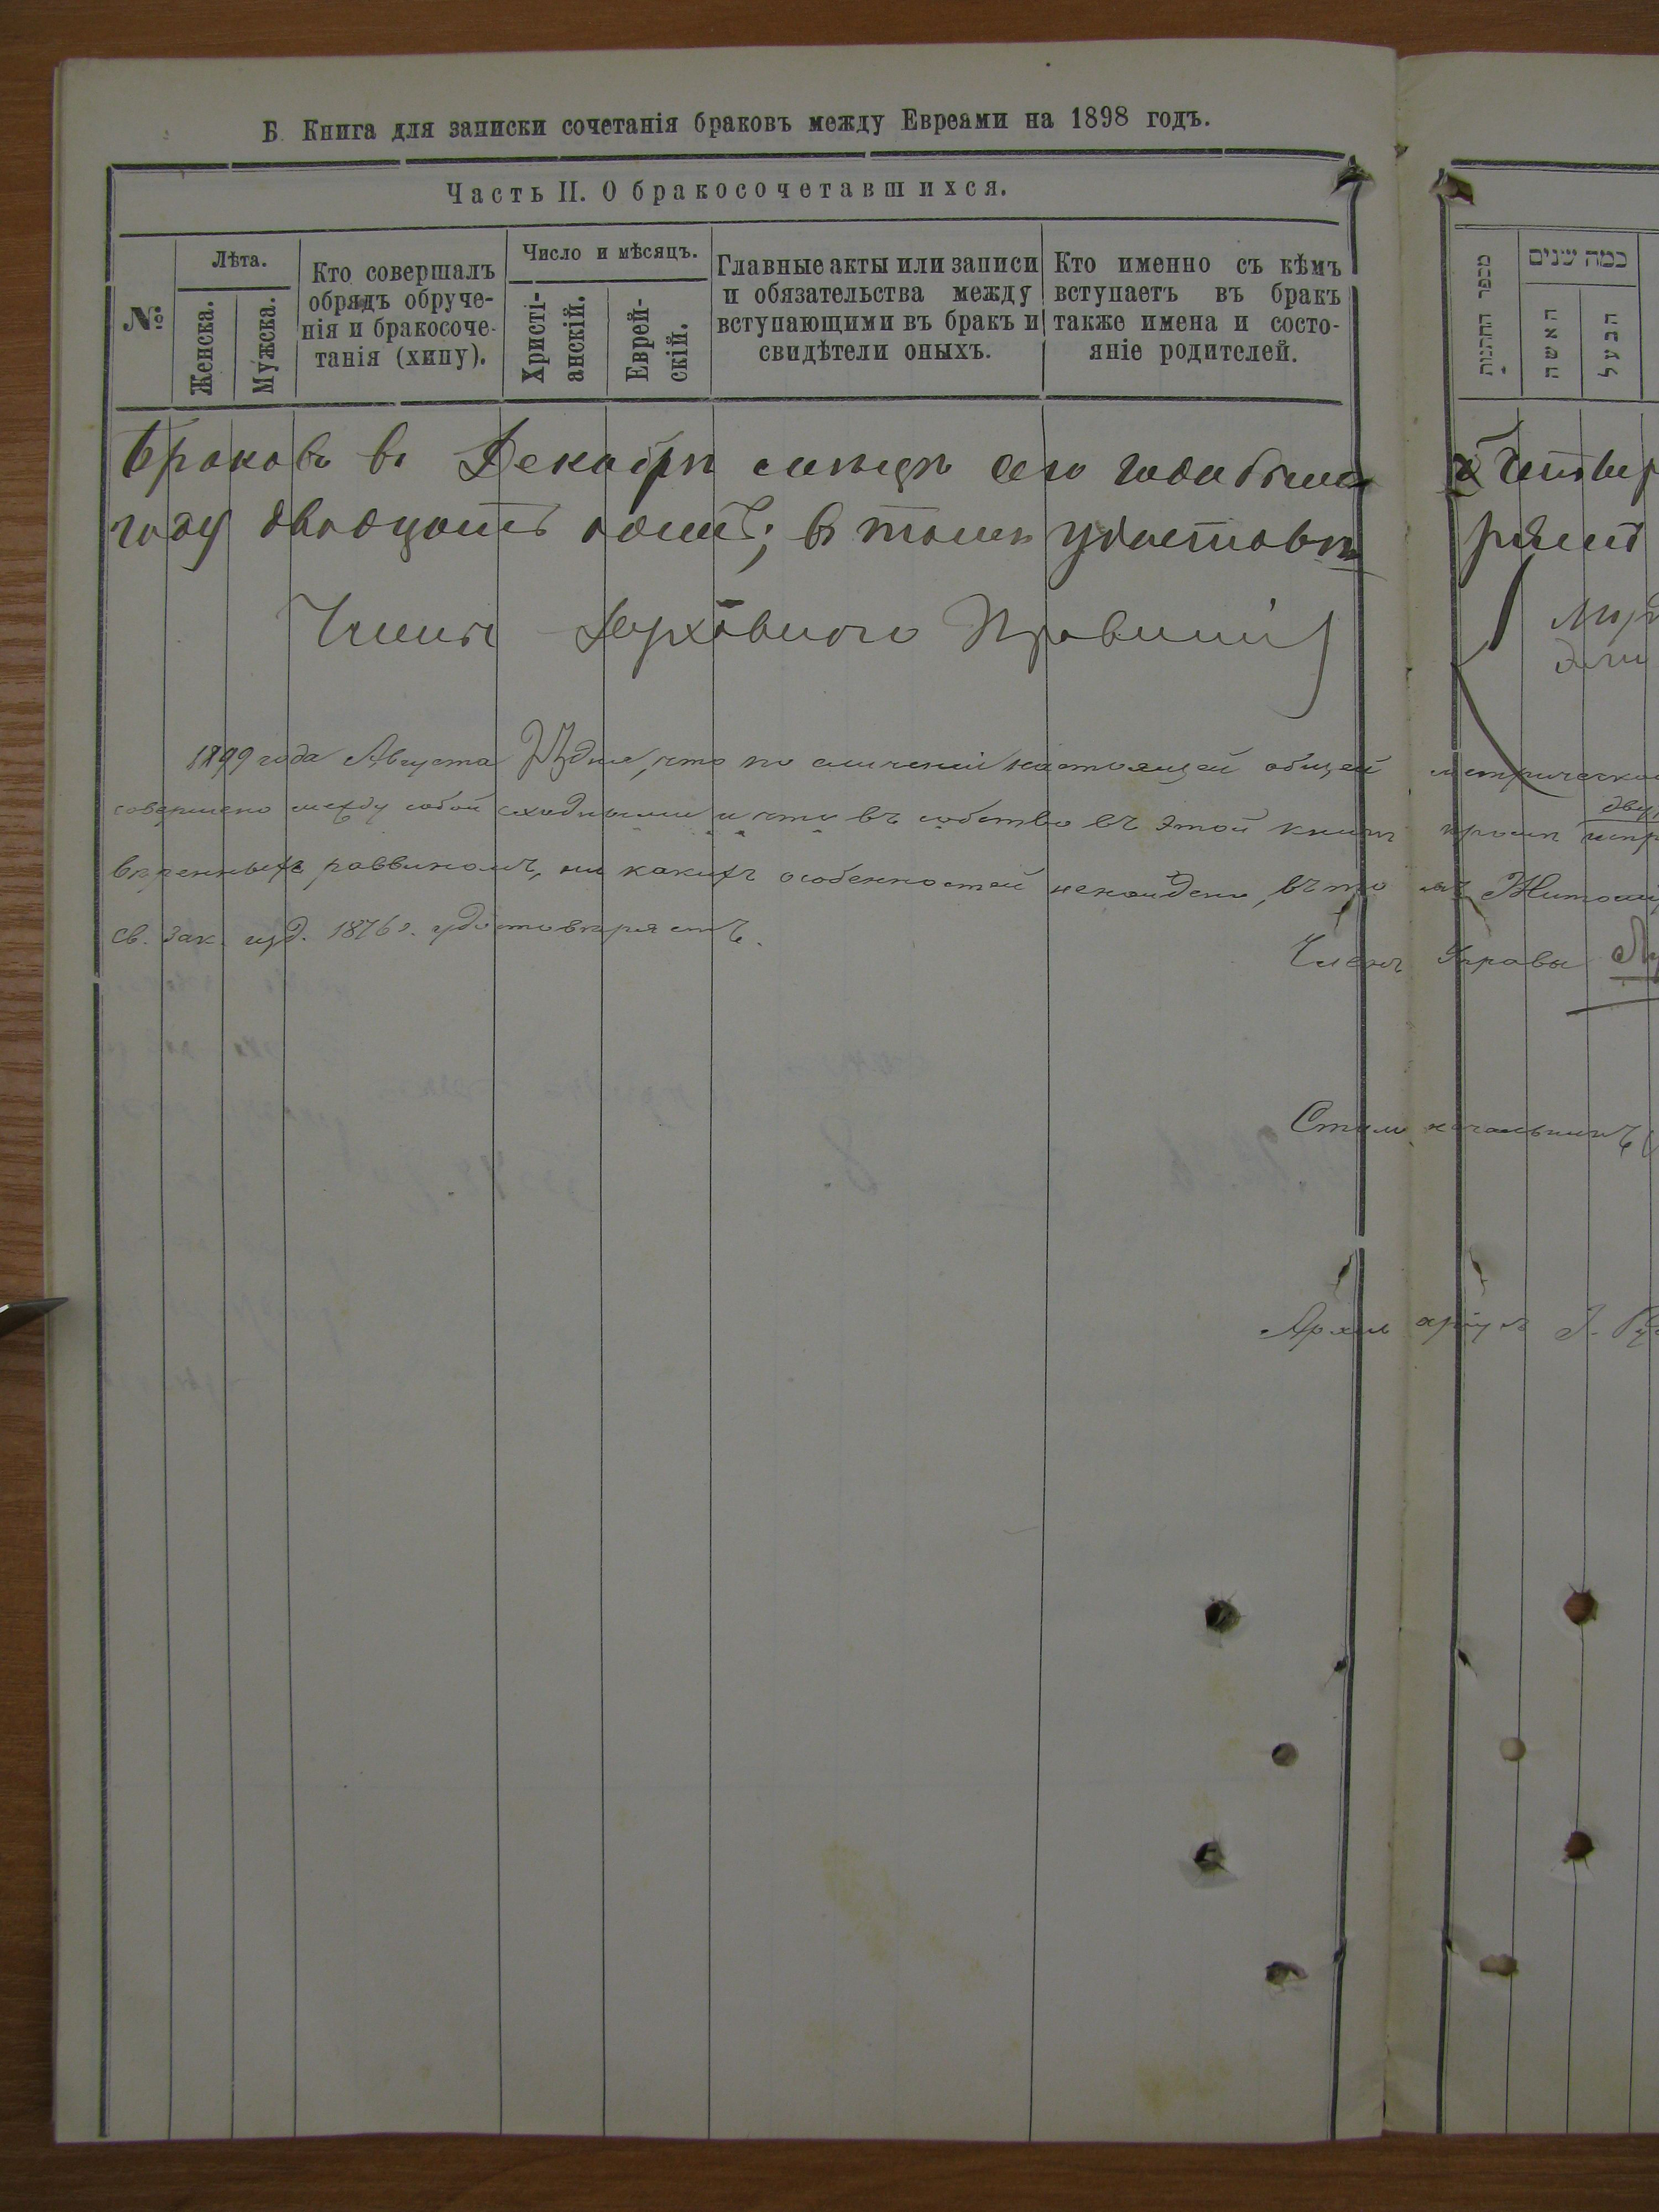 Б. Книга для записки сочетанія браковъ между Евреями на 1898 годъ.
Часть II. О бракосочетавшихся.
№
Лѣта.
Женска.
Мужска.
Кто совершалъ
обрядъ обруче-
нія и бракосоче-
танія (хипу).
Число и мѣсяцъ.
Христі-
анскій.
Еврей-
скій.
Главные акты или записи
и обязательства между
вступающими въ бракъ и
свидѣтели оныхъ.
Кто именно съ кѣмъ
вступаетъ въ бракъ
также имена и состо-
яніе родителей.
Браковъ въ Декабрѣ мѣсяцѣ сего года было
году двадцать одинъ; въ томъ удостовѣ
Члены Духовнаго Правленія
1899 года Августа дня, что по сличеніи настоящей общей
совершено между собой сходными и что въ этой книгѣ
раввиномъ, ни какихъ особенностей ненайдено, въ
св. зак. изд. 1876 г. удостовѣряетъ.
Членъ Управы
Столоначальникъ
מספר החתנות
כמה שנים
האשה
הבעל
четвер
ряемъ
метрическо
кромѣ
Житомі